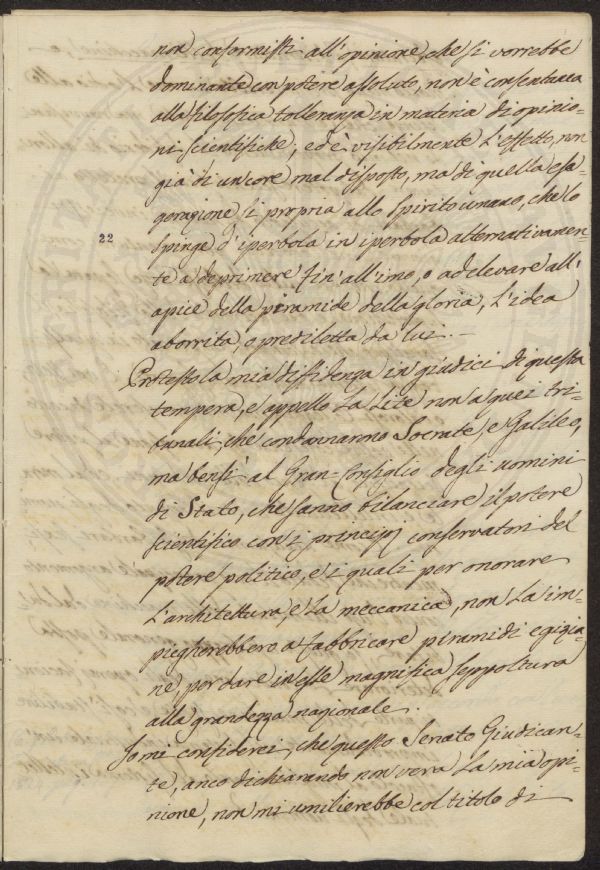 non conformisti all'opinione, che si vorrebbe
dominante con potere assoluto, non è consentanea
alla filosofica tolleranza in materia di opinio-
ni scientifiche, ed è visibilmente l'effetto, non
già di un core mal disposto, ma di quella esa-
gerazione sì propria allo spirito umano, che lo
22
spinge d'iperbola in iperbola alternativamen-
te a deprimere fin'all'imo, o ad elevare all'
apice della piramide della gloria, l'idea
aborrita, o prediletta da lui. -
Protesto la mia diffidenza in giudici di questa
tempera, e appello la Lite non a quei tri-
bunali, che condannarono Socrate, e Galileo,
ma bensì al Gran-Consiglio degli uomini
di Stato, che sanno bilanciare il potere
scientifico con i principj conservatori del
potere politico, e i quali per onorare
l'architettura, e la meccanica, non la im-
piegherebbero a fabbricare piramidi egizia-
ne, per dare in esse magnifica seppoltura
alla grandezza nazionale.
Io mi confiderei, che questo Senato Giudican-
te, anco dichiarando non vera la mia opi-
nione, non mi umilierebbe col titolo di